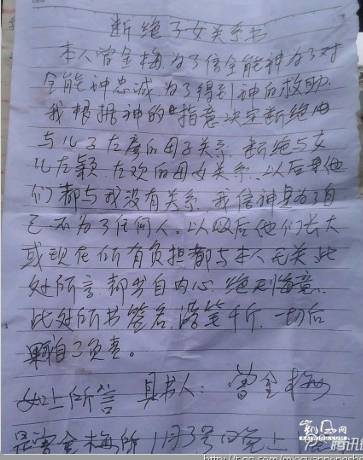 断绝子女关系书
本人曾金梅为了信全能神为了对
全能神忠诚为了得到神的救助
我根据神的"指意决定断绝由
与儿子左彦的母子关系.断绝与女
儿左颖.左欢的母女关系.以后里他
们都与我没有关系.我信神是为了自
己不为了任何人.以后他们长大
或现在所有负担都与本人无关.此
处所言都出自内心.绝无悔意.
此处所书签名.落笔千斤.一切后
果自己负责.
以上所言 具书人: 曾金梅
是曾金梅所 11月3号晚上
腾讯